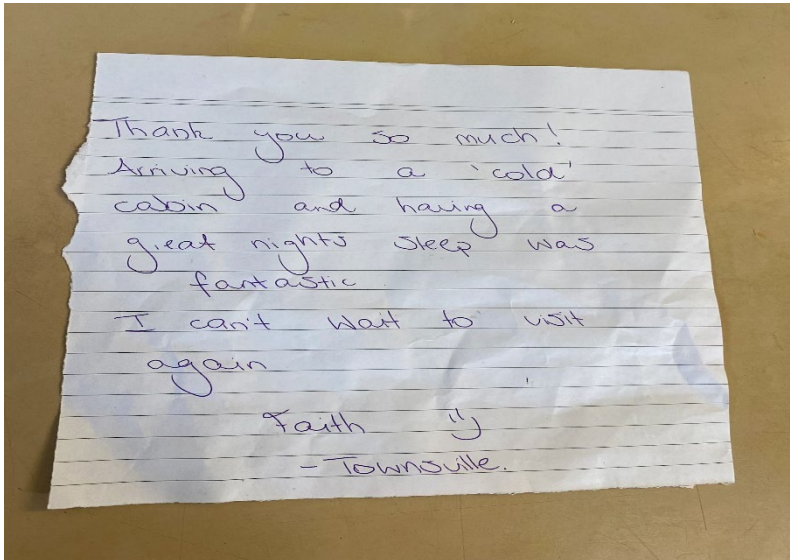 Thank you so much!
Arriving to a 'cold'
cabin and having a
great nights sleep was
fantastic
I can't wait to visit
again
Faith :)
- Townsville.